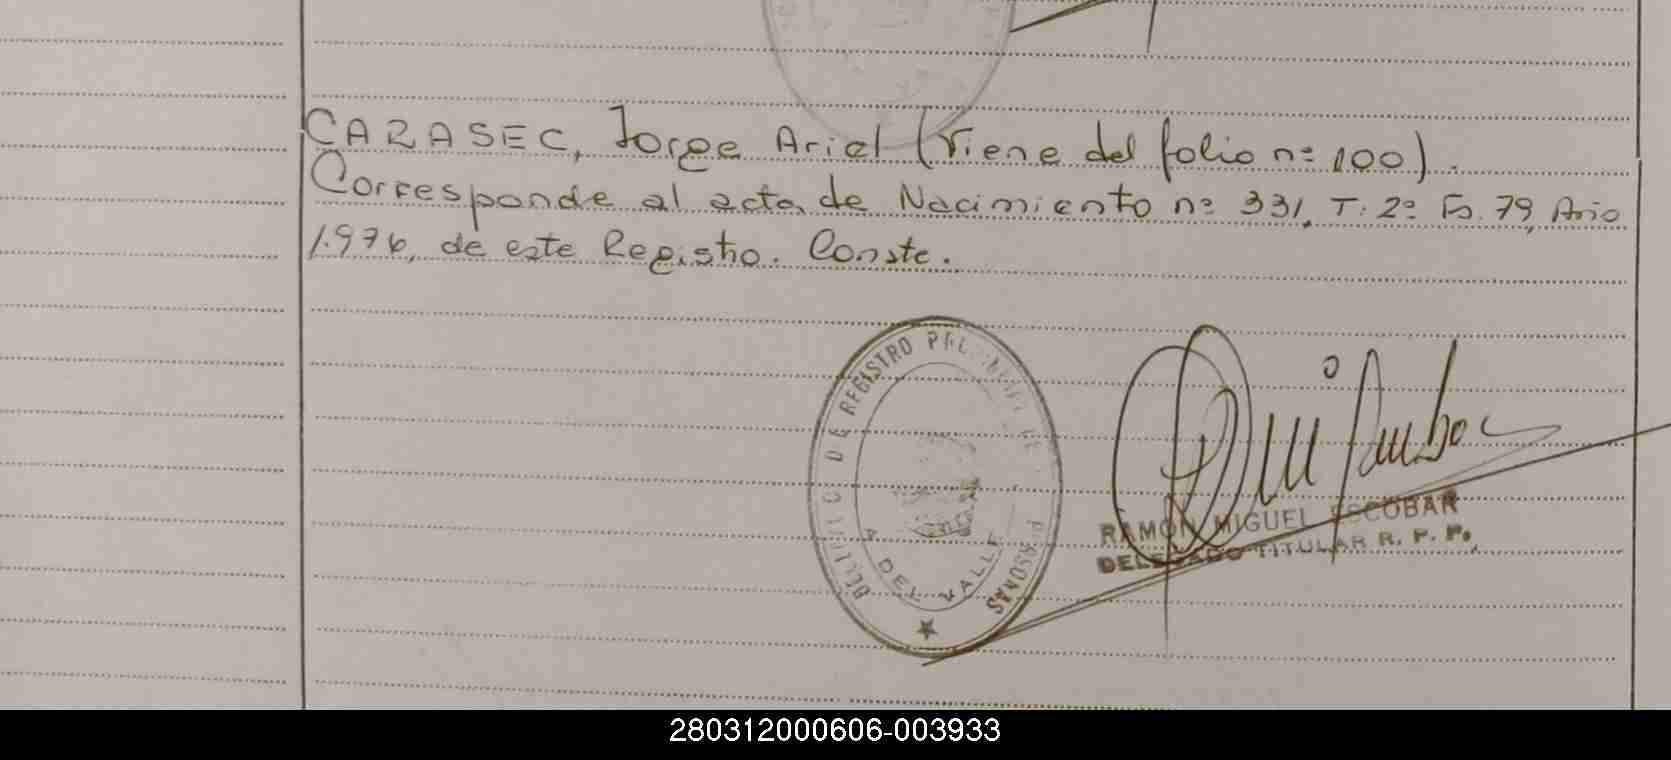 CARASEC, Jorge Ariel (Viene del folio nº 100).
Corresponde al acta de Nacimiento nº 331, T: 2º Fo. 79, Año
1.976, de este Registro. Conste.
DE REGISTRO
PERSONAS
DEL VALLE
RAMON MIGUEL ESCOBAR
DELEGADO TITULAR R. P. P.
280312000606-003933